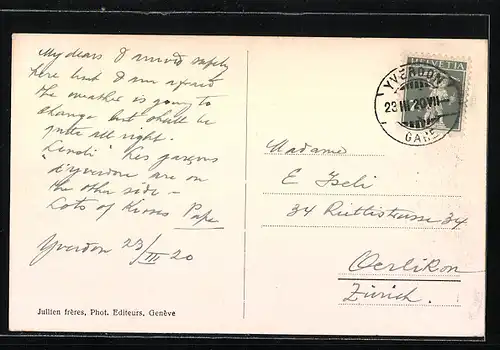 My dears I arrived safely
here but I am afraid
the weather is going to
change but shall be
quite all right.
"Les garçons
d'Yverdon" are on
the other side –
Lots of kisses Papa
Yverdon 23/III 20
Jullien frères, Phot. Editeurs, Genève
HELVETIA
YVERDON
23 III 20 VII
GARE
Madame
E Iseli
34 Riettistrasse 34
Oerlikon
Zürich.